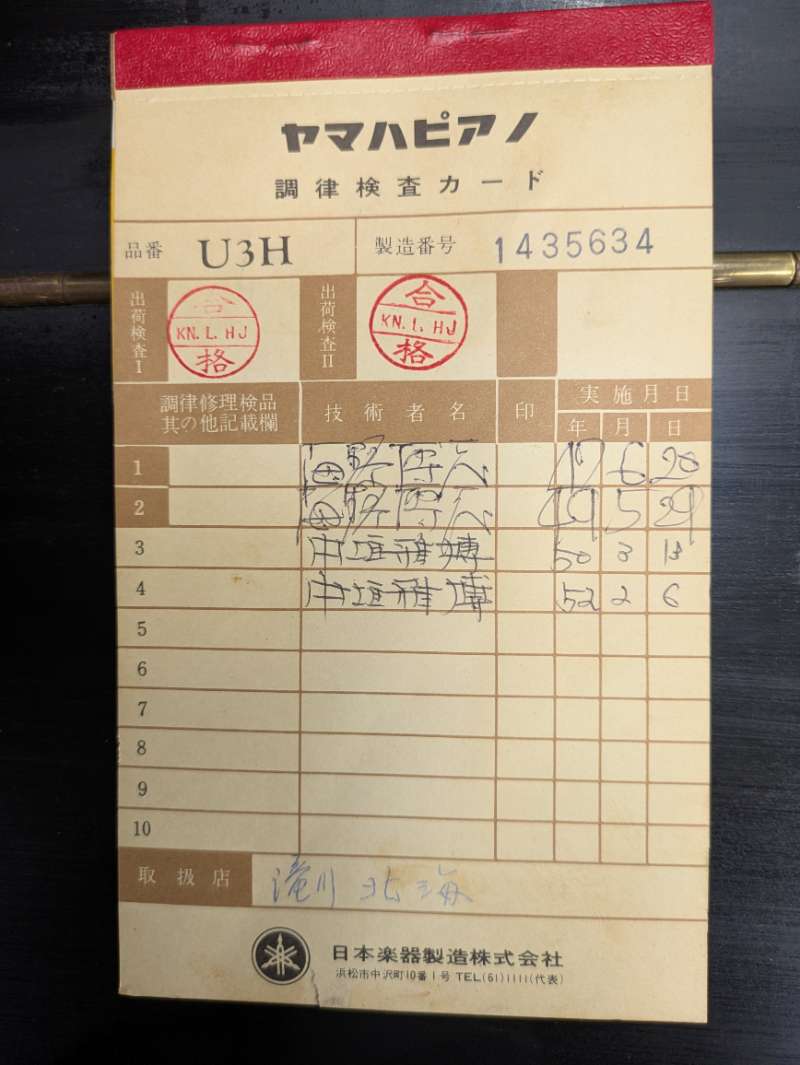 ヤマハピアノ
調律検査カード
品番 U3H 製造番号 1435634
出荷検査I 合 KN.L.HJ 格 出荷検査II 合 KN.L.HJ 格
調律修理検品其の他記載欄 技術者名 印 実施月日
年 月 日
1 47 6 20
2 49 5 29
3 中垣雅博 50 3 13
4 中垣雅博 52 2 6
5
6
7
8
9
10
取扱店 滝川北海
日本楽器製造株式会社
浜松市中沢町10番1号 TEL(61)1111(代表)